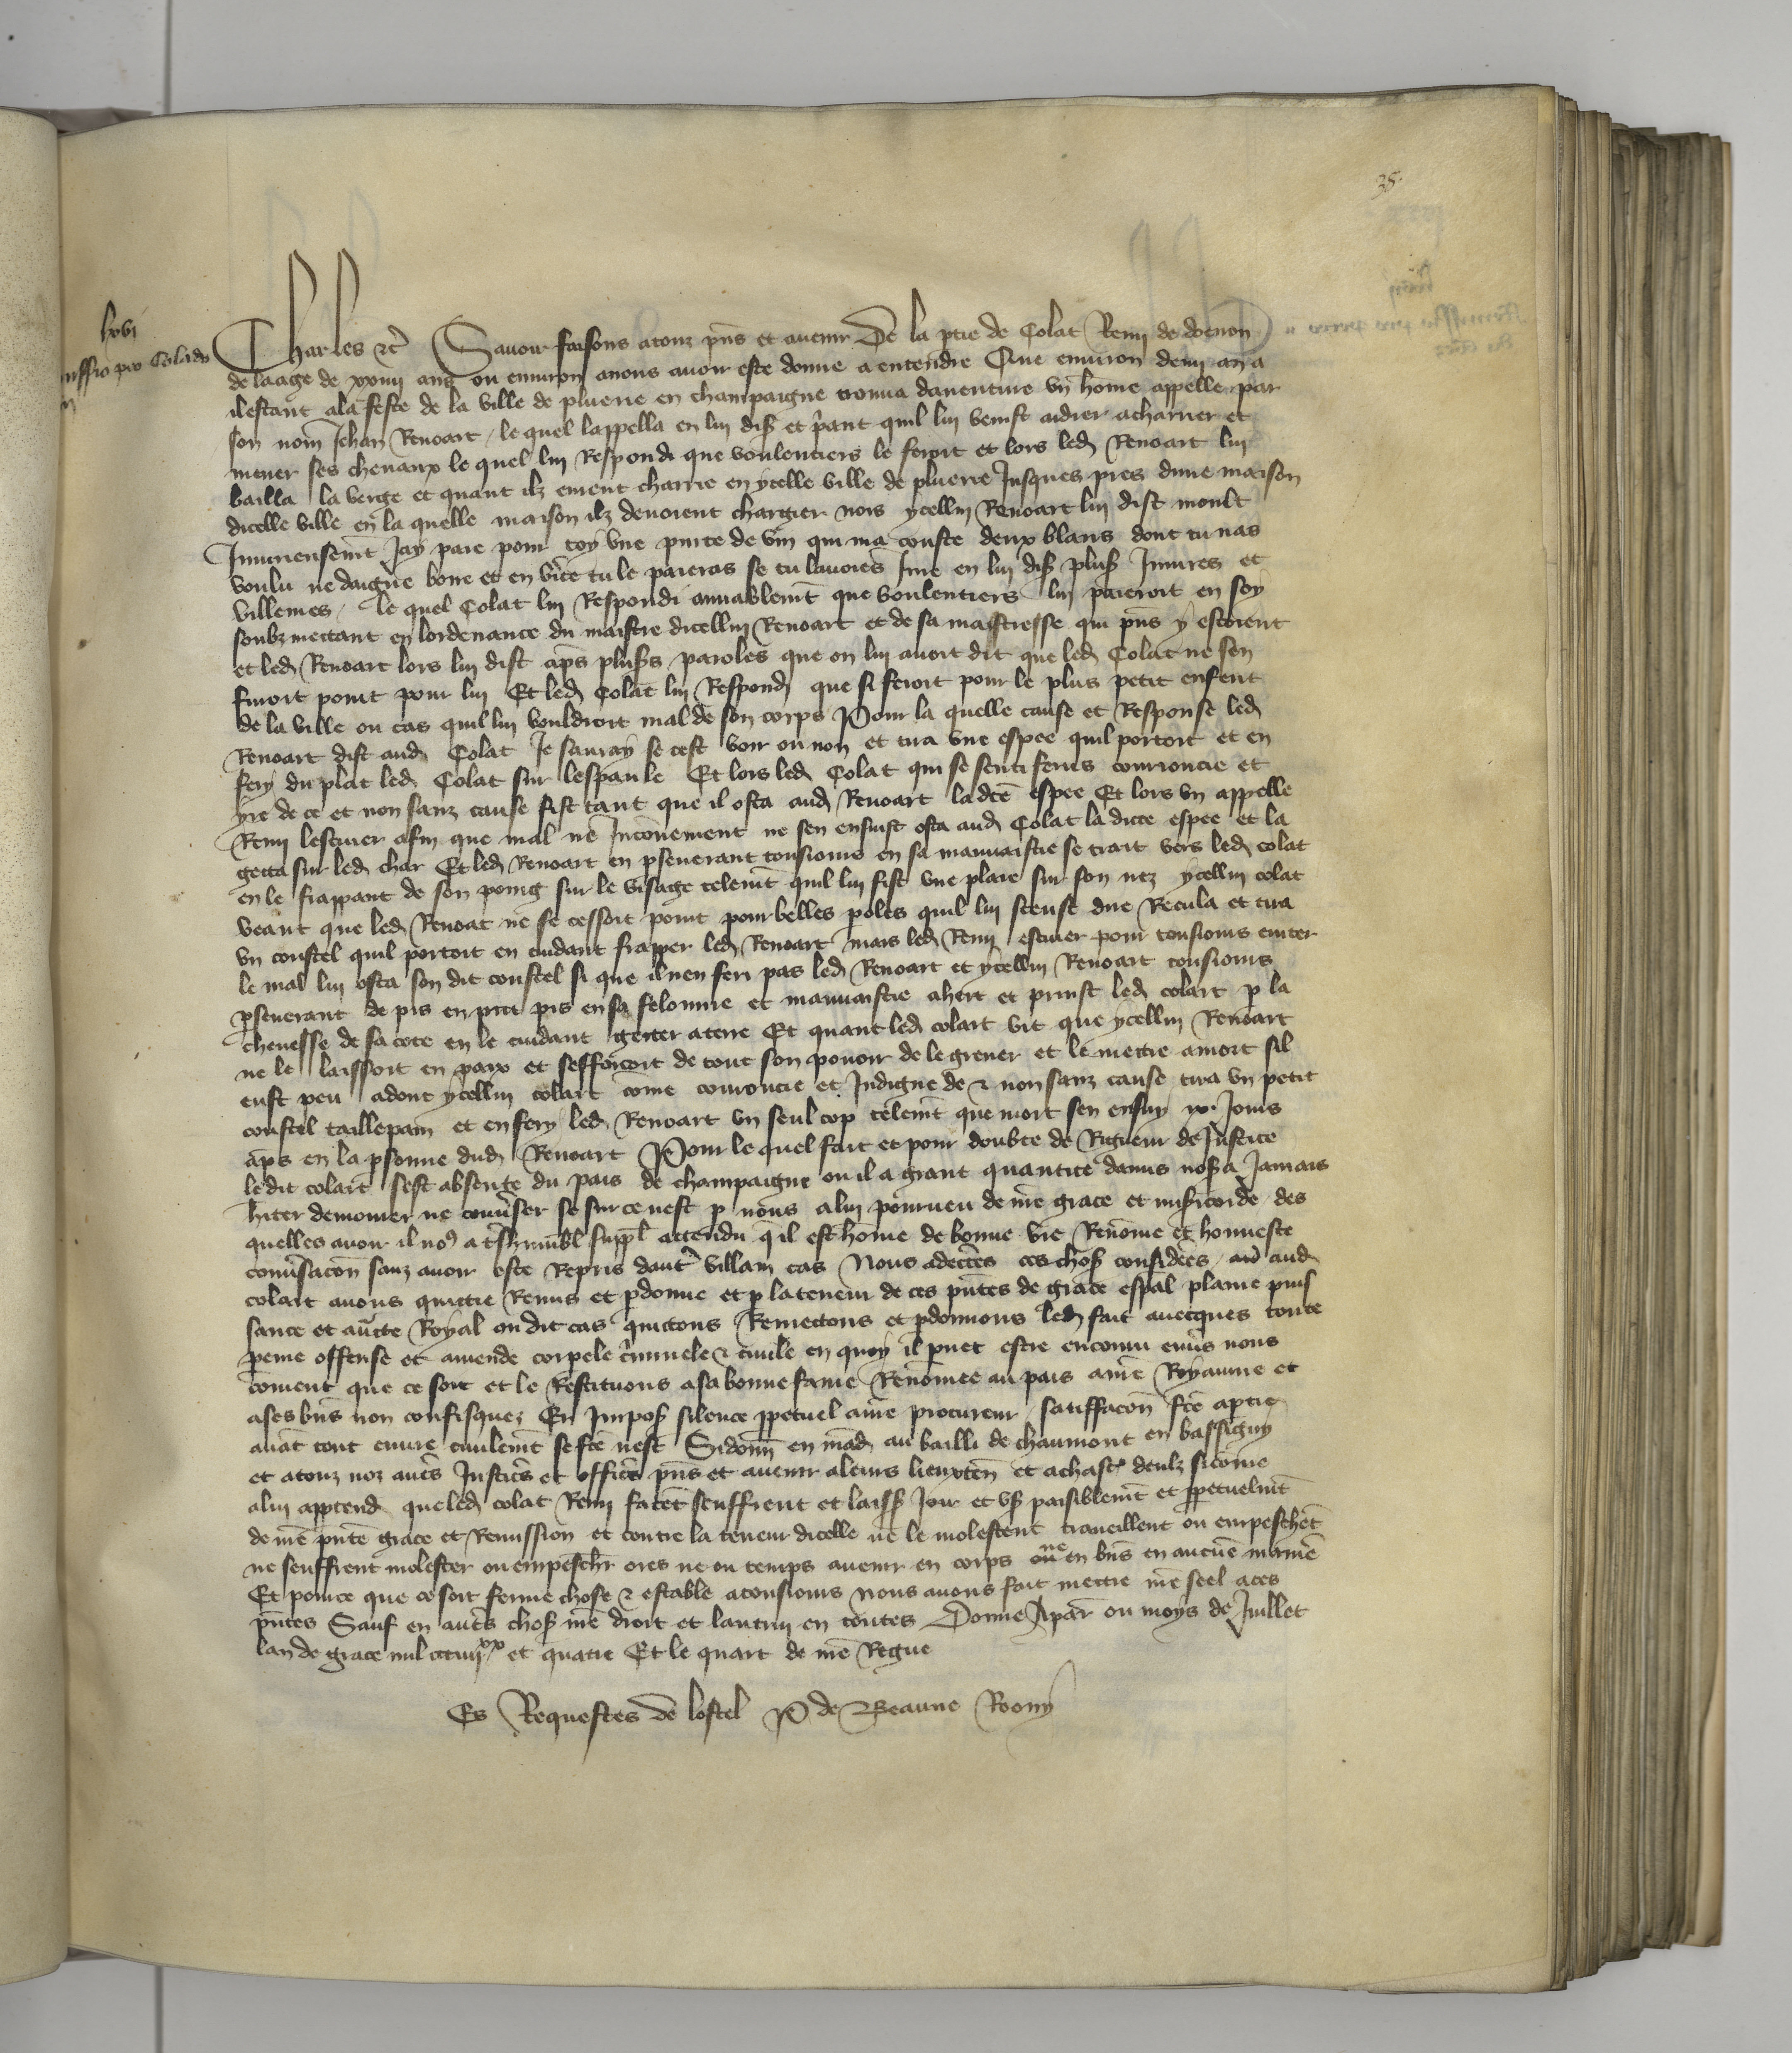 35.
lxvi
Charles etc Savoir faisons a touz pns et avenir De la ptie de Colat Remi de doenon
de laage de xxiiii ans ou environ a nous avoir este donne a entendre Que environ demi an a
il estant a la feste de la ville de pluerie en champaigne trouva daventure un home appelle par
son nom Jehan Renoart le quel lappella en lui dis et priant quil lui venist aidier a charier et
mener ses chevaux le quel lui Respondi que voulentiers le feroit et lors led Renoart lui
bailla la verge et quant ilz eurent charie en ycelle ville de pluerie Jusques pres dune maison
dicelle ville en la quelle maison ilz devoient chargier nois ycellui Renoart lui dist moult
Iniurieusemt Jay paie pour toy une pinte de vin qui ma couste deux blans dont tu nas
voulu ne daigne boire et en vite tu le paieras se tu lavoies Jure en lui dis plus Iniures et
villenies le quel Colat lui Respondi amiablemt que voulentiers lui paieroit en soy
soubzmettant en lordenance du maistre dicellui Renoart et de sa maistresse qui pns y estoient
et led Renoart lors lui dist aps plus paroles que on lui avoit dit que led Colat ne sen
fuioit point pour lui Et led Colat lui Respond que si feroit pour le plus petit enfent
de la ville ou cas quil lui vouldroit mal de son corps Pour la quelle cause et Response led
Renoart dist aud Colat Je sauray se cest voir ou non et tira une espee quil portoit et en
fery du plat led Colat sur lespaule Et lors led Colat qui se senti ferus courroucie et
yre de ce et non sanz cause fist tant que il osta aud Renoart ladte espee Et lors un appelle
Remi lescuier afin que mal ne Inconvenient ne sen ensuist osta aud Colat la dicte espee et la
getta sur led char Et led Renoart en pseverant tousiours en sa mauvaistie se trait vers led colat
en le frappant de son poing sur le visage telemt quil lui fist une plaie sur son nez ycellui colat
veant que led Renoat ne se cessoit point pour belles poles quil lui sceust dire Recula et tira
un coustel quil portoit en cuidant frapper led Renoart mais led Remi escuier pour tousiours eviter
le mal lui osta son dit coustel si que il nen feri pas led Renoart et ycellui Renoart tousiours
pseverant de pis en pis en sa felonnie et mauvaistie ahert et prinst led colart p la
chevesse de sa cote en le cuidant getter a terre Et quant led colart vit que ycellui Renoart
ne le laissoit en paix et sefforcoit de tout son povoir de le grever et le mettre a mort sil
eust peu adont ycellui colart come courroucie et Indigne de et non sanz cause tira un petit
coustel taillepain et en fery led Renoart un seul cop telemt que mort sen ensuy ix Jours
aps en la psonne dud Renoart Pour le quel fait et pour doubte de Rigueur de Justice
ledit colart sest absente du pais de champaigne ou il a grant quantite damis nosa Jamais
hiter demourer ne converser se sur ce nest p nous a lui pourveu de nre grace et misericorde des
quelles avoir il nos a tshumbl suppl attendu q il est home de bonne vie Renome et honneste
conversacon sanz avoir este Repris daut villain cas Nous adectes ces chos consideres aud
colart avons quittie Remis et pdonne et p la teneur de ces pntes de grace espal plaine puis
sance et aucte Royal ou dit cas quittons Remettons et pdonnons led fait avecques toute
peine offense et amende corpele criminele et civile en quoy il puet estre encouru envs nous
coment que ce soit et le Restituons a sa bonne fame Renomee au pais a nre Royaume et
a ses bns non confisquez En Impos silence ppetuel a nre procureur satiffacon fce a ptie
avat tout euvre civilemt se fce nest Si donn en mad au bailli de chaumont en bassigny
et a touz noz autrs Justicrs et officrs pns et avenir a leurs lieuxten et a chascun deulz si come
a lui apptend que led colat Remi facet seuffrent et laiss Joir et us paisiblemt et ppetuelmt
de nre pnte grace et Remission et contre la teneur dicelle ne le molestent traveillent ou empeschet
ne seuffrent molester ou empeschr ores ne ou temps avenir en corps ne en bns en aucune maniere
Et pource que ce soit ferme chose et estable a tousiours nous avons fait mettre nre seel a ces
pntes Sauf en autrs chos nre droit et lautrui en toutes Donne A par ou moys de Juillet
lan de grace mil ccciiii xx et quatre Et le quart de nre Regne
Es Requestes de lostel P de Beaune Rony